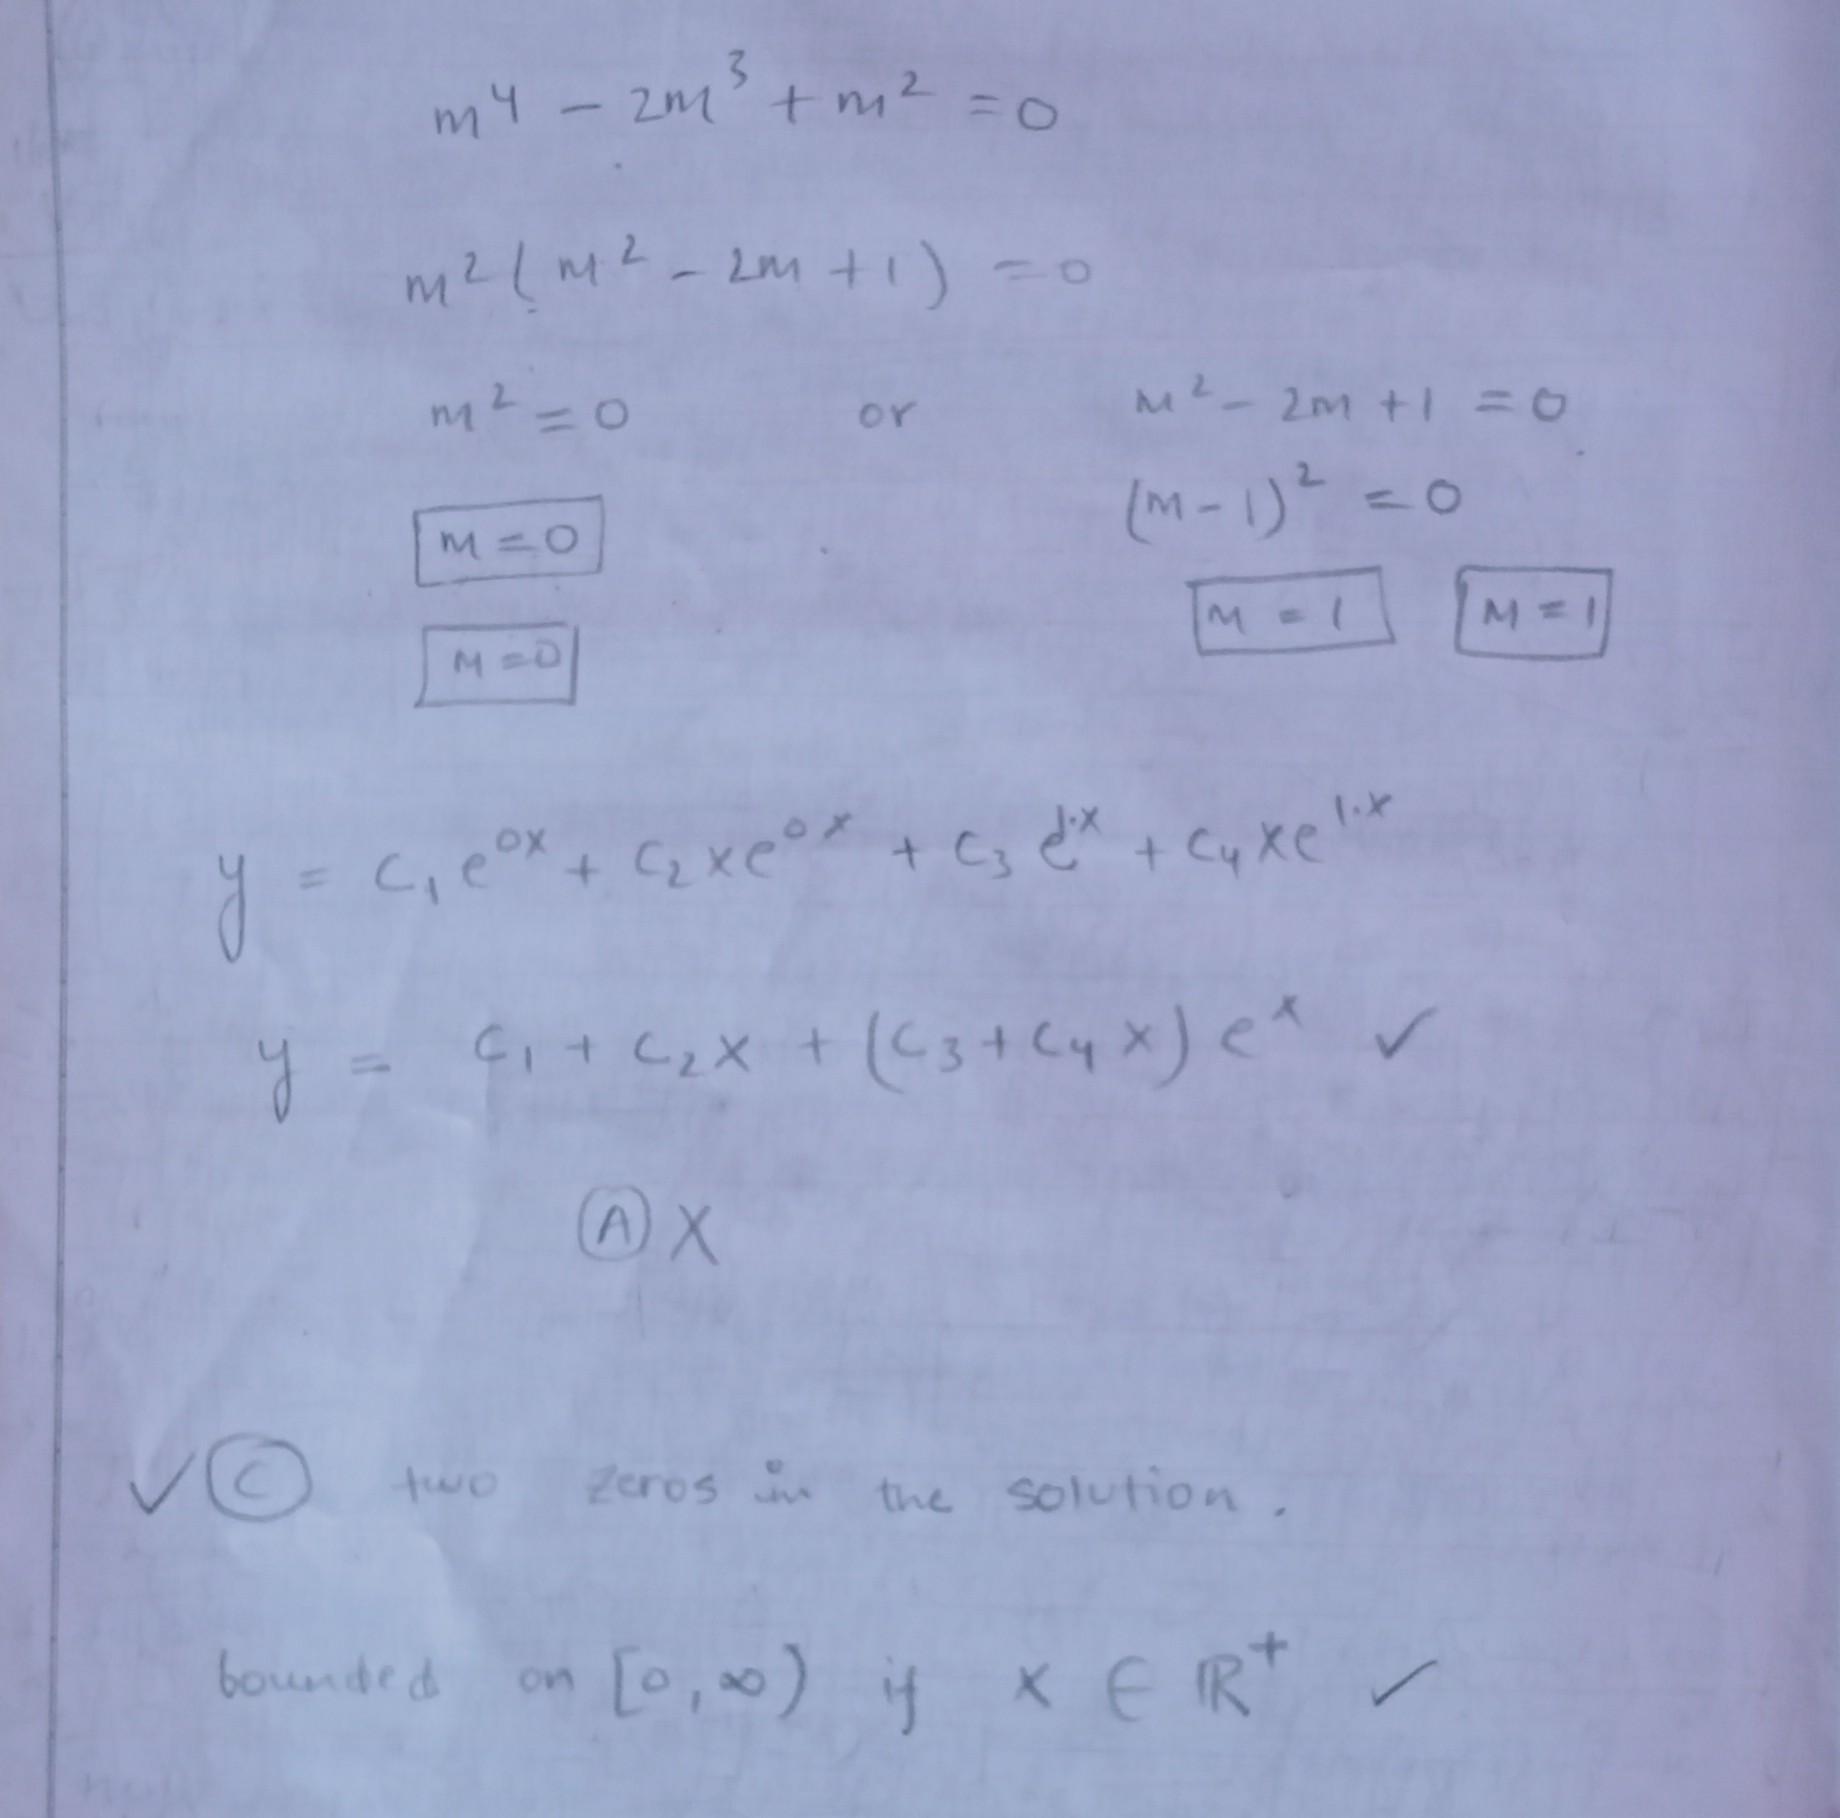 m⁴ - 2m³ + m² = 0
m² ( m² - 2m + 1 ) = 0
m² = 0 or m² - 2m + 1 = 0
m = 0 (m - 1)² = 0
m = 0 m = 1 m = 1
y = c₁e⁰ˣ + c₂xe⁰ˣ + c₃e¹·ˣ + c₄xe¹·ˣ
y = c₁ + c₂x + (c₃ + c₄x) eˣ ✓
Ⓐ X
✓ Ⓒ two zeros in the solution.
bounded on [0, ∞) if x ∈ ℝ⁺ ✓